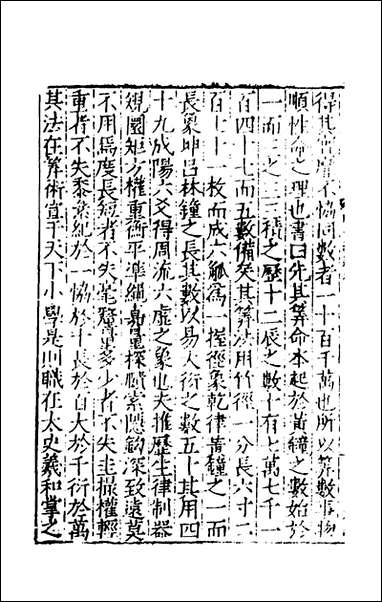 得其實靡不協同數者一十百千萬也所以算數事物
順性命之理也書曰先其算命本起於黃鐘之數始於
一而三之三三積之歷十二辰之數十有七萬七千一
百四十七而五數備矣其算法用竹徑一分長六寸二
百七十一枚而成六觚為一握徑象乾律黃鐘之一而
長象坤呂林鐘之長其數以易大衍之數五十其用四
十九成陽六爻得周流六虛之象也夫推歷生律制器
規圜矩方權重衡平準繩嘉量探賾索隱鉤深致遠莫
不用焉度長短者不失毫釐量多少者不失圭撮權輕
重者不失黍絫紀於一協於十長於百大於千衍於萬
其法在算術宣于天下小學是則職在太史羲和掌之